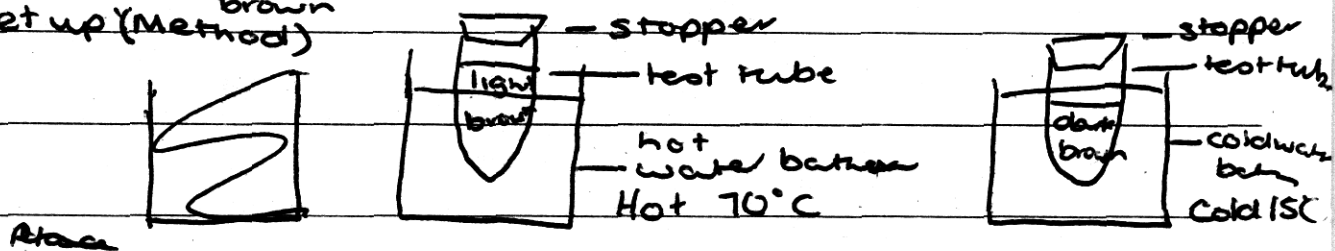 brown
et up (Method)
stopper
test tube
light
brown
hot
water bath
Hot 70°C
stopper
test tub
dark
brown
cold wate
bath
Cold 15C